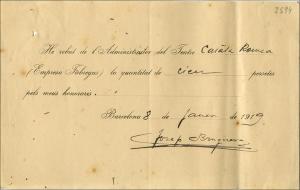 2594
He rebut de l'Administrador del Teatre Català Romea
(Empresa Fàbregas) la quantitat de cien pessetes
pels meus honoraris.
Barcelona 8 de Janer de 1919
Josep Bruguera